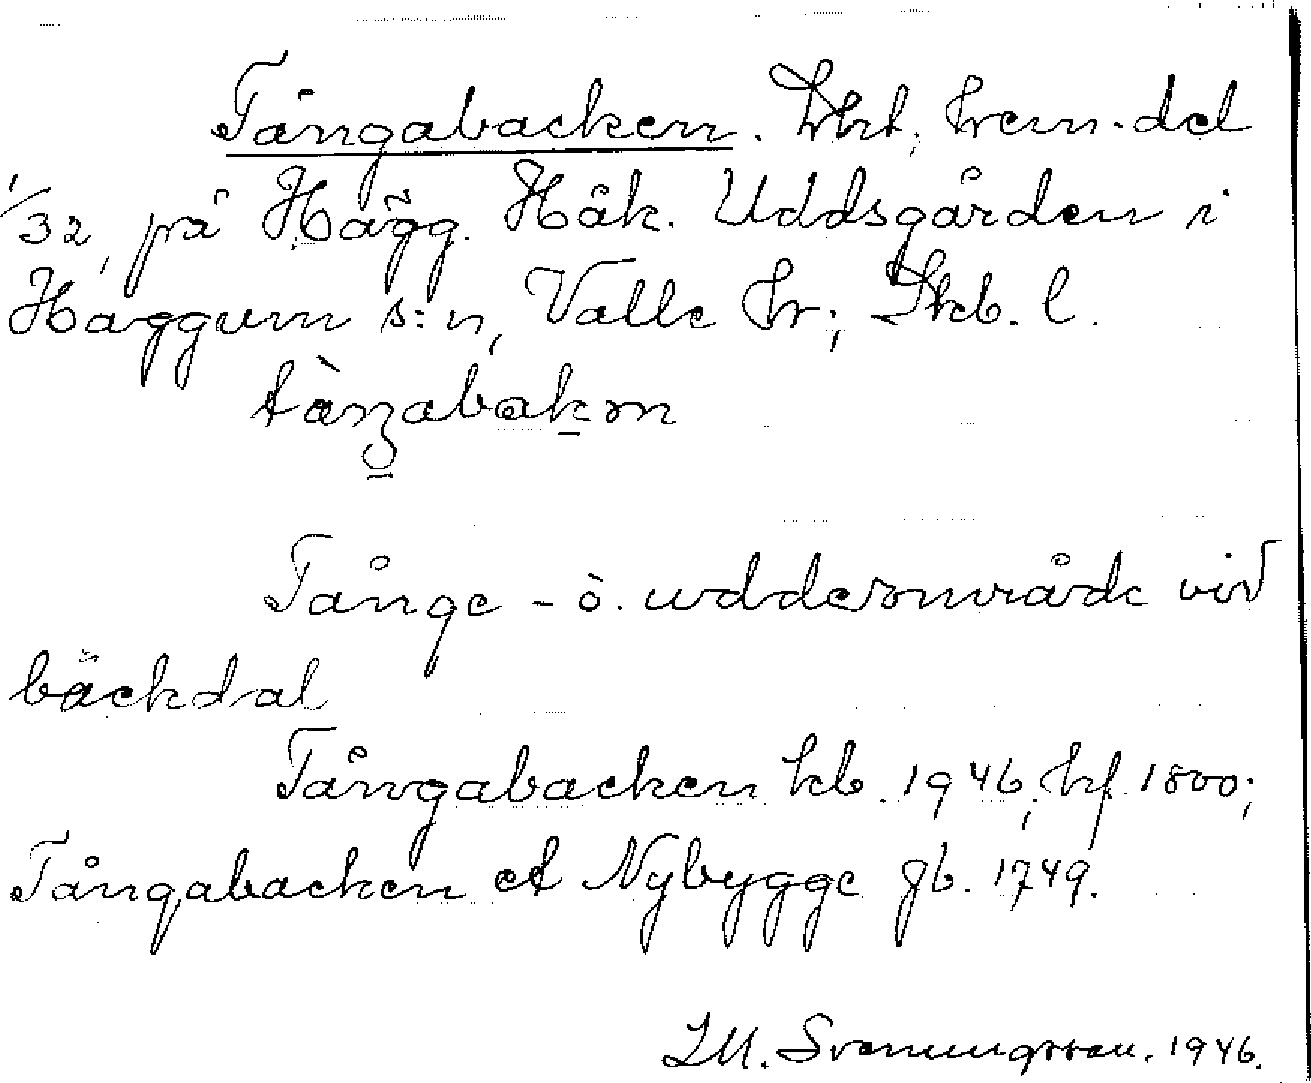 Tångabacken. hem.del
1/32, på Hägg. Håk. Uddsgården i
Häggum s:n, Valle hr; Skb. l.
tàŋabakən
Tånge - ö. uddeområde vid
bäckdal
Tångabacken kb. 1946; hf 1800;
Tångabacken et Nybygge jb. 1749.
Svenungsson. 1946.